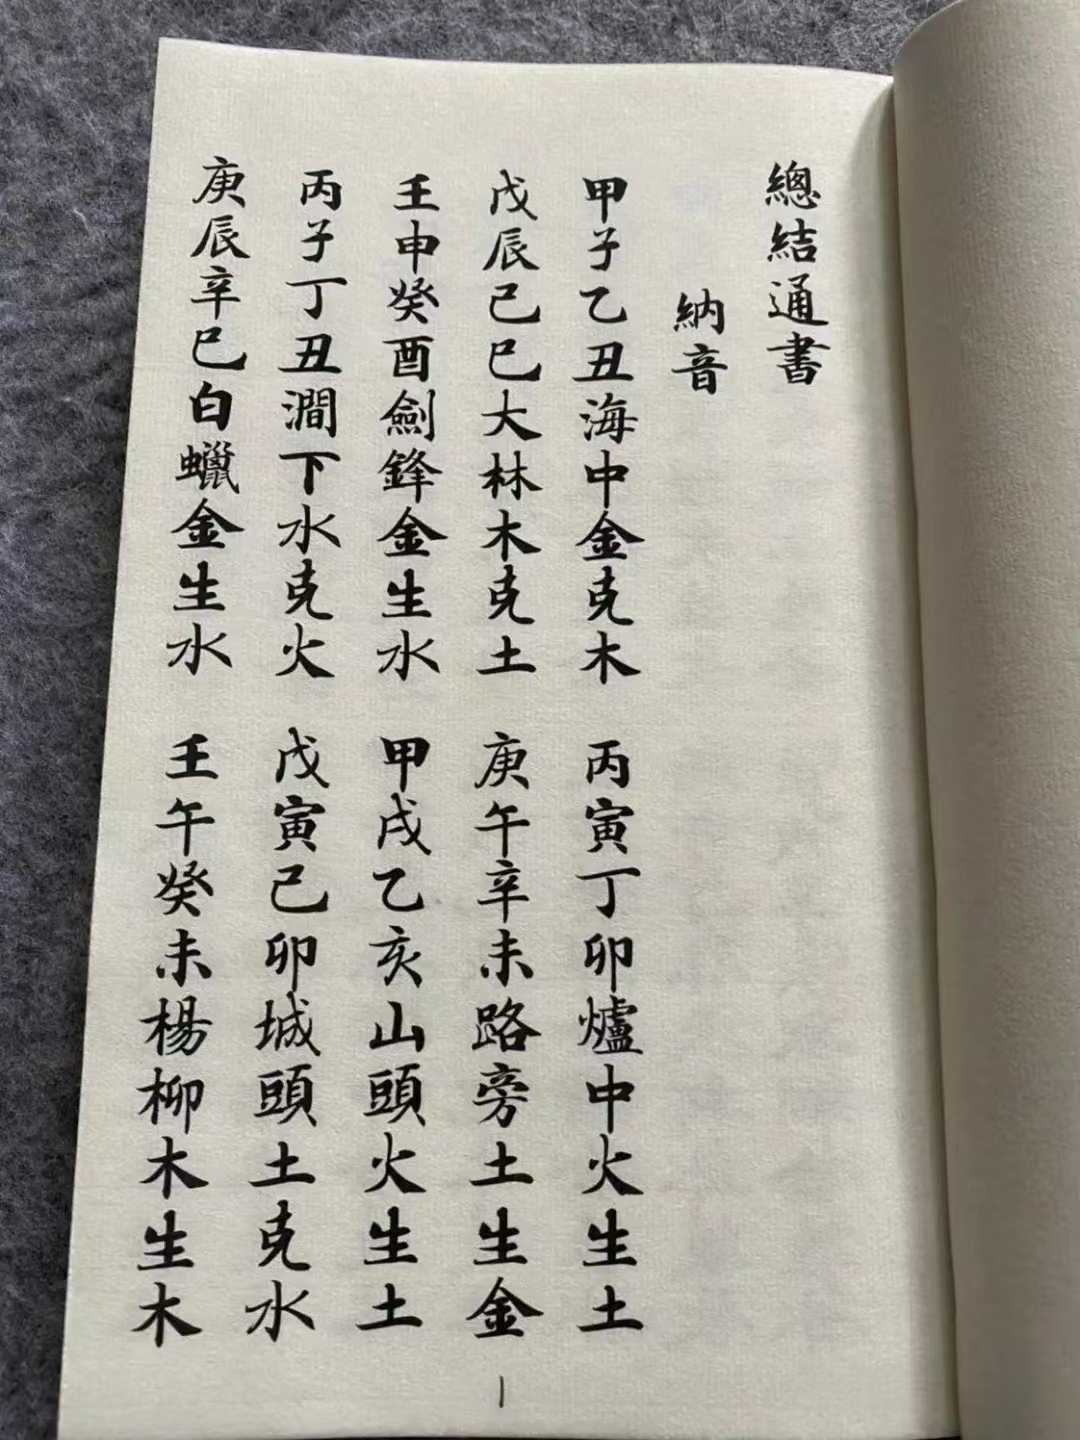 總結通書
納音
甲子乙丑海中金克木
丙寅丁卯爐中火生土
戊辰己巳大林木克土
庚午辛未路旁土生金
壬申癸酉劍鋒金生水
甲戌乙亥山頭火生土
丙子丁丑澗下水克火
戊寅己卯城頭土克水
庚辰辛巳白蠟金生水
壬午癸未楊柳木生木
1